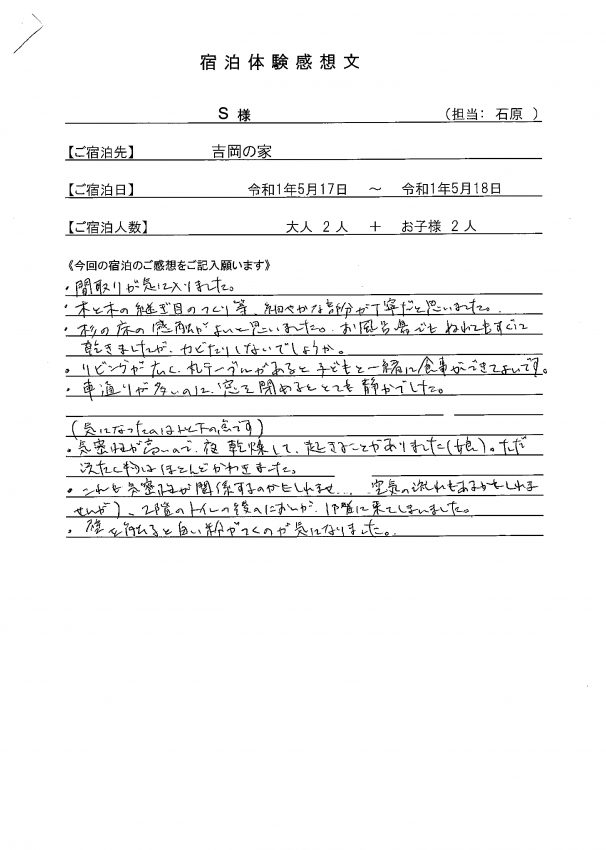 宿泊体験感想文
S 様 (担当: 石原 )
【ご宿泊先】 吉岡の家
【ご宿泊日】 令和1年5月17日 ～ 令和1年5月18日
【ご宿泊人数】 大人 2人 + お子様 2人
《今回の宿泊のご感想をご記入願います》
・間取りが気に入りました。
・木と木の継ぎ目のつくり等、細やかな部分が丁寧だと思いました。
・杉の床の感触がよいと思いました。お風呂場でもぬれてもすぐに
乾きましたが、カビたりしないでしょうか。
・リビングが広く、丸テーブルがあると子どもと一緒に食事ができてよいです。
・車通りが多いのに、窓を閉めるととても静かでした。
(気になったのは以下の点です)
・気密性が高いので、夜乾燥して、起きることがありました(娘)。ただ
洗たく物はほとんどかわきました。
・これも気密性が関係するのかもしれませ、、、空気の流れもあるかもしれま
せんが)、2階のトイレの後のにおいが、1階に来てしまいました。
・壁を触ると白い粉がつくのが気になりました。